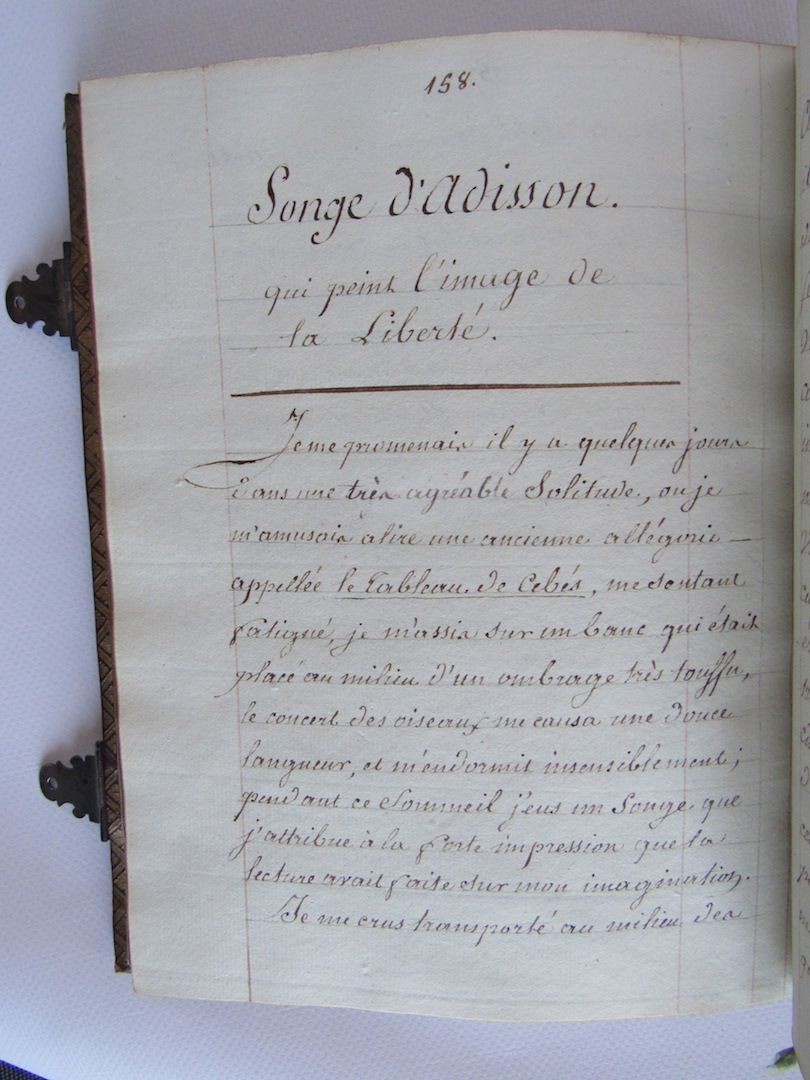 158.
Songe d'Adisson.
qui peint l'image de
la Liberté.
Je me promenais il y a quelques jours
dans une très agréable Solitude, ou je
m'amusais a lire une ancienne allégorie —
appellée le Tableau de Cebés, me sentant
fatigué, je m'assis sur un banc qui était
placé au milieu d'un ombrage très touffu,
le concert des oiseaux me causa une douce
langueur, et m'endormit insensiblement ;
pendant ce Sommeil j'eus un Songe que
j'attribue à la forte impression que la
lecture avait faite sur mon imagination.
Je me crus transporté au milieu des